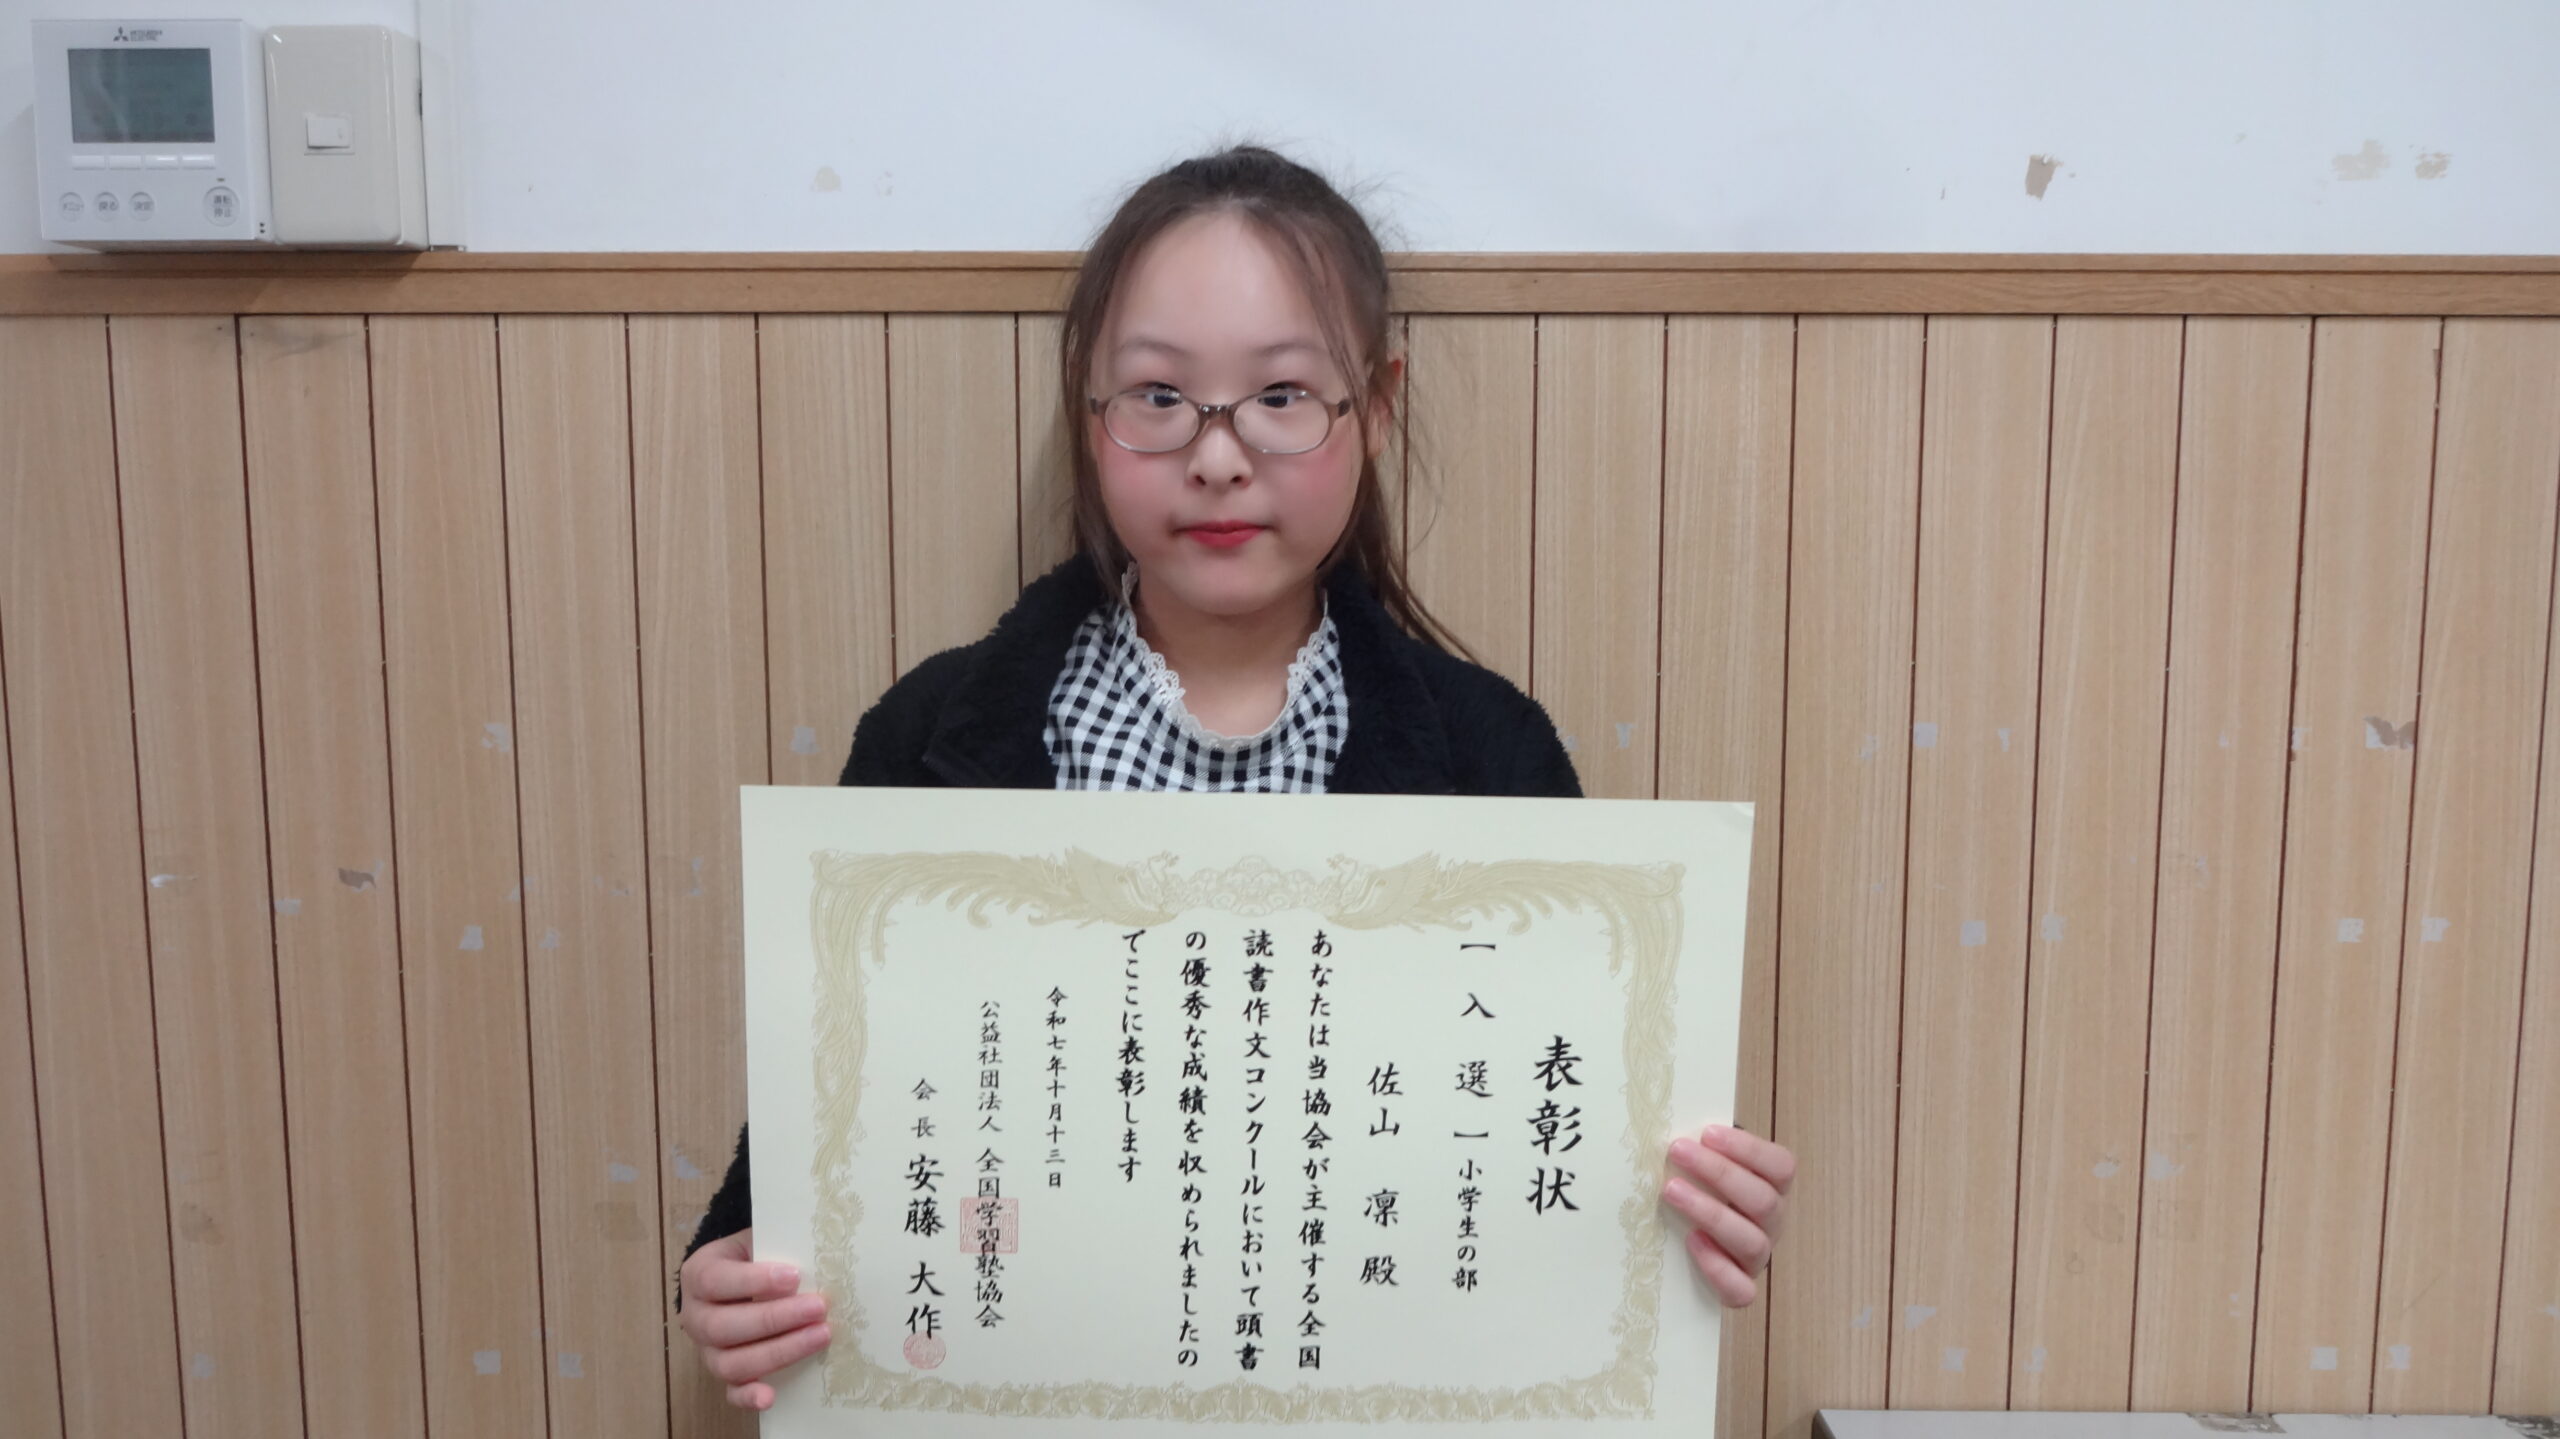 MITSUBISHI
ELECTRIC
メニュー
戻る
決定
運転
停止
表彰状
【入選】小学生の部
佐山 凛 殿
あなたは当協会が主催する全国
読書作文コンクールにおいて頭書
の優秀な成績を収められましたの
でここに表彰します
令和七年十月十三日
公益社団法人 全国学習塾協会
会長 安藤 大作